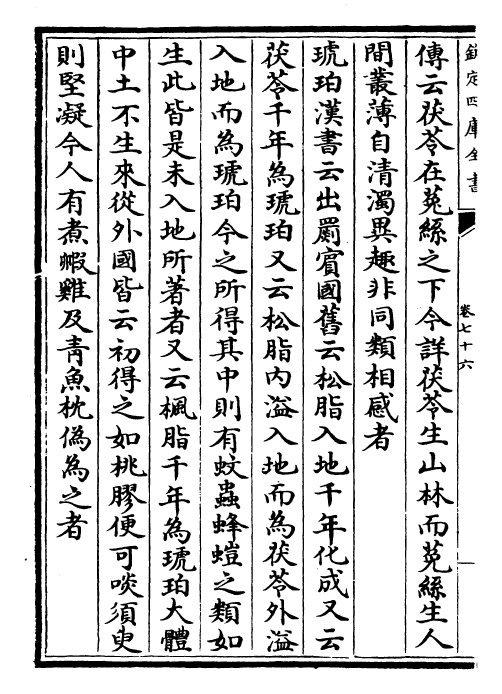 欽定四庫全書
卷七十六
傳云茯苓在菟絲之下今詳茯苓生山林而菟絲生人
間叢薄自清濁異趣非同類相感者
琥珀漢書云出罽賓國舊云松脂入地千年化成又云
茯苓千年為琥珀又云松脂内溢入地而為茯苓外溢
入地而為琥珀今之所得其中則有蚊蟲蜂螘之類如
生此皆是未入地所著者又云楓脂千年為琥珀大體
中土不生來從外國皆云初得之如桃膠便可啖須臾
則堅凝今人有煮㲉雞及青魚枕偽為之者